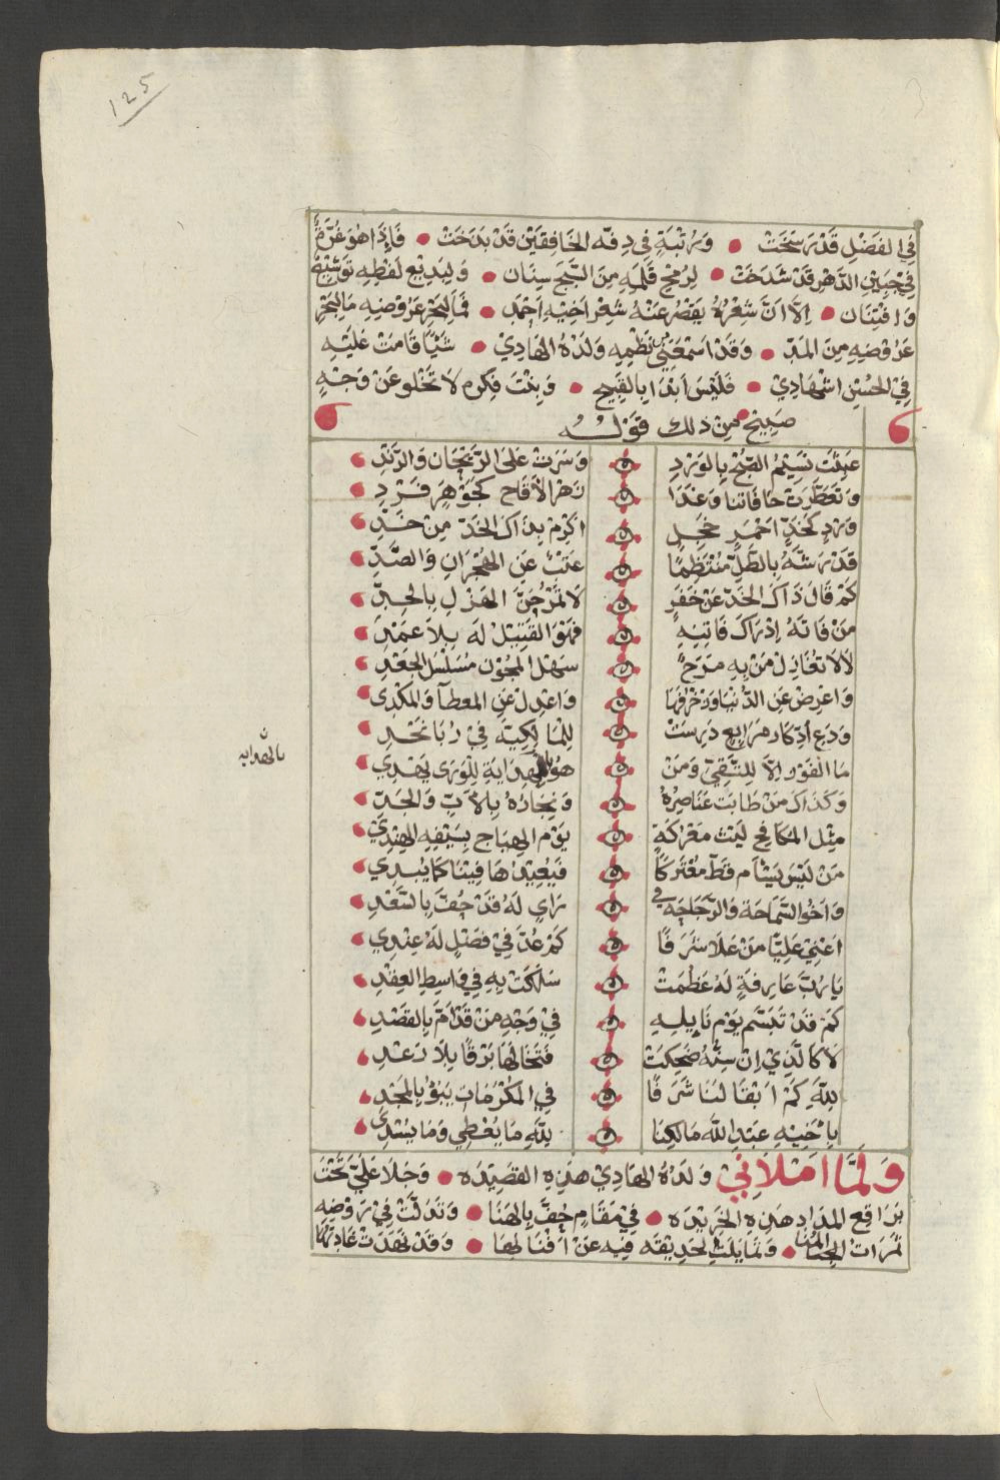 125
في الفضل قد رسخت • ورتبة في دفه الخافقين قد بدخت • فاذا هو غرة
في جبين الدهر قد شدخت • لرمح قلمه من الحجج سنان • ولبديع لفظه توشيع
وافتنان • الا ان شعره يقصر عنه شعر اخيه احمد • فما لبحر عروضه ما لبحر
عروضه من المد • وقد اسمعني من نظمه ولده الهادي • شيا قامت عليه
في الحسن اشهادي • فليس ابدا بالقبيح • وبنت فكره لا تخلو عن وجه
صبيح • من ذلك قوله
عبثت نسيم الصبح بالورد وسرت على الريحان والرند
وتعطرت حافاتنا وغدا زهر الاقاح كجوهر فرد
ورد كخد احمر خجل اكرم بذاك الخد من خد
قد رشه بالطل منتظما عتب عن الهجران والصد
كم قال ذاك الخد عن خفر لا تمزجن الهزل بالجد
من فاته ادراك فانيه فهو القتيل له بلا عمد
لا لا تغازل من به مرح سهل المجون مسلسل الجعد
واعرض عن الدنيا وزخرفها واعدل عن المعطا والمكدى
ودع ادكار مرابع درست للمالكية في ربا نجد
ما الفوز الا للتقي ومن هو بالهداية للورى يهدي
وكذاك من طابت عناصره ونجاره بالاب والجد
مثل المكافح ليث معركة يوم الهياج بسيفه الهندي
من ليس يشام قط معتركا فيعيدها فينا كما يبدي
واخو السماحة والرجاجة في راي له قد حف بالسعد
اعني عليا من علا شرفا كم عد في فضل له عندي
يا رب عارفة له عظمت سلكت به في واسط العقد
كم قد تبسم يوم نايله في وجه من قد ام بالقصد
لا كالذي ان سنه ضحكت فتخالها برقا بلا رعد
لله كم ابقا لنا شرفا في المكرمات ينوء بالمجد
باخيه عبد الله مالكنا لله ما يعطي وما يسدي
بالهدايه ن
ولما املاني ولده الهادي هذه القصيده • وجلا علي تحت
براقع المداد هذه الخريده • في مقام حف بالهنا • وتدلت في روضه
ثمرات المنا • وتمايلت لحديقته فيه عن افنانها • وقد نهدت غاداتها